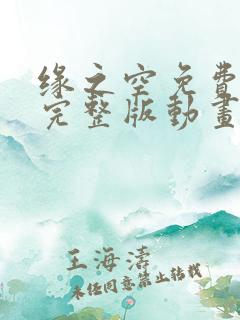 缘之空免费
完整版動畫
王海濤
未经同意禁止转载